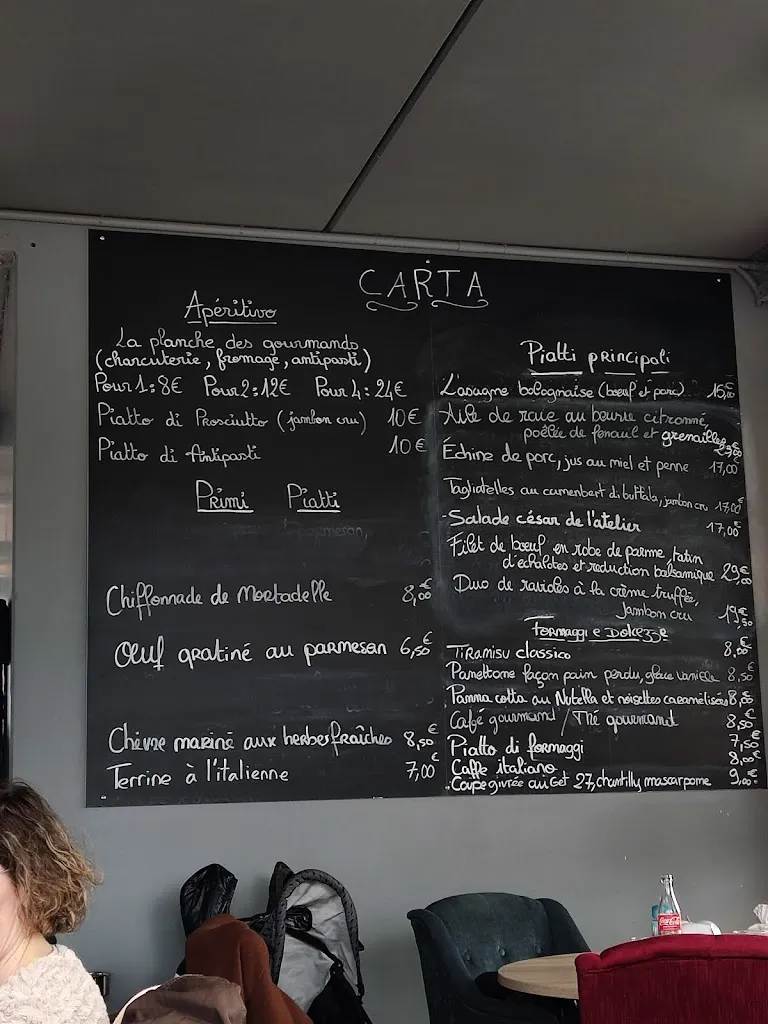 CARTA
Apéritivo
La planche des gourmands
(charcuterie, fromage, antipasti)
Pour 1 : 8€ Pour 2 : 12€ Pour 4 : 24€
Piatto di Prosciutto (jambon cru) 10€
Piatto di Antipasti 10€
Primi Piatti
Chiffonnade de Mortadelle 8,00€
Œuf gratiné au parmesan 6,50€
Chèvre mariné aux herbes fraîches 8,50€
Terrine à l'italienne 7,00€
Piatti principali
Lasagne bolognaise (bœuf et porc) 15,00€
Aile de raie au beurre citronné,
poêlée de fenouil et grenailles
Échine de porc, jus au miel et penne 17,00€
Tagliatelles au camembert di buffala, jambon cru 17,00€
-Salade césar de l'atelier 17,00€
Filet de bœuf en robe de parme, tatin
d'échalotes et reduction balsamique 29,00€
Duo de ravioles à la crème truffée,
jambon cru 19,50€
Formaggi e Dolcezze
Tiramisu classico 8,00€
Panettone façon pain perdu, glace vanille 8,50€
Panna cotta au Nutella et noisettes caramélisées 8,00€
Café gourmand / Thé gourmand 8,50€
Piatto di formaggi 7,50€
Caffe italiano 8,00€
-Coupe givrée au Get 27, chantilly mascarpone 9,00€
Coca-Cola